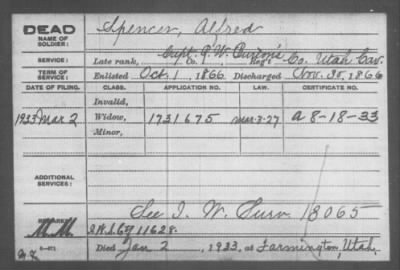 DEAD
NAME OF SOLDIER:
Spencer, Alfred
SERVICE:
Late rank, Capt. Co. Reg't Co. Utah Cav.
TERM OF SERVICE:
Enlisted Oct. 1, 1866 Discharged Nov. 30, 1866
DATE OF FILING. CLASS. APPLICATION NO. LAW. CERTIFICATE NO.
Invalid,
1933 Mar 2 Widow, 1731675 Mar-3-27 a 8-18-33
Minor,
ADDITIONAL SERVICES:
See I. W. Surv. 18065
M.M. 11628.
Died Jan 2, 1933, at Farmington, Utah.